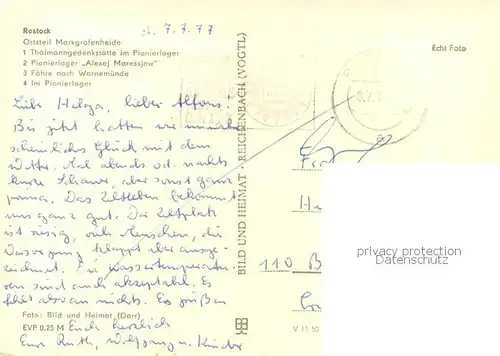 Rostock
d. 7.7.77
Ortsteil Markgrafenheide
1 Thälmanngedenkstätte im Pionierlager
2 Pionierlager „Alexej Maressjew"
3 Fähre nach Warnemünde
4 Im Pionierlager
Echt Foto
Liebe Helga, lieber Alfons!
Bis jetzt hatten wir
scheinliches Glück mit dem
Wetter. Mal abends od. nachts
kurze Schauer, aber sonst ganz
prima. Das Zeltleben bekommt
uns ganz gut. Der Zeltplatz
ist riesig, viele Menschen, die
Versorgung klappt aber ausge-
zeichnet. Die Wassertemperatu-
ren sind auch akzeptabel. Es
fehlt also an nichts. Es grüßen
Euch herzlich
Eure Ruth, Wolfgang u. Kinder
Foto: Bild und Heimat (Darr)
EVP 0,25 M
BILD UND HEIMAT · REICHENBACH (VOGTL)
110 B
V 11 50
privacy protection
Datenschutz